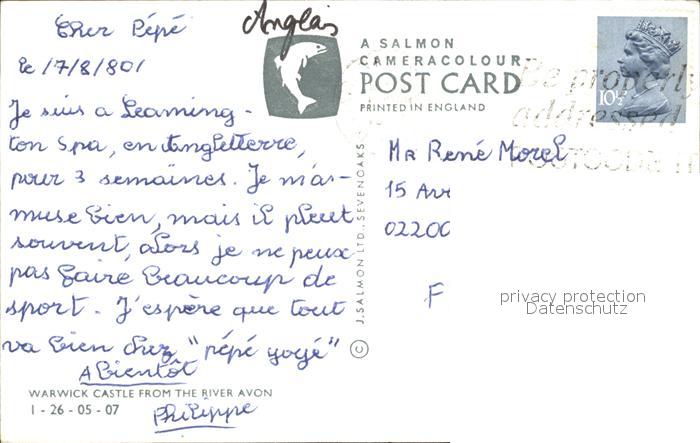 Cher Pépé
Anglais
le 17/8/80/
A SALMON
CAMERACOLOUR
POST CARD
PRINTED IN ENGLAND
10½
Be properly
addressed
POSTCODE IT
Je suis a Leaming-
ton Spa, en Angleterre,
pour 3 semaines. Je m'a-
muse bien, mais il pleut
souvent, alors je ne peux
pas faire beaucoup de
sport. J'espère que tout
va bien chez "pépé yoyé"
A Bientôt
Philippe
WARWICK CASTLE FROM THE RIVER AVON
1 - 26 - 05 - 07
J. SALMON LTD., SEVENOAKS ©
Mr René Morel
15 Av
0220
F
privacy protection
Datenschutz